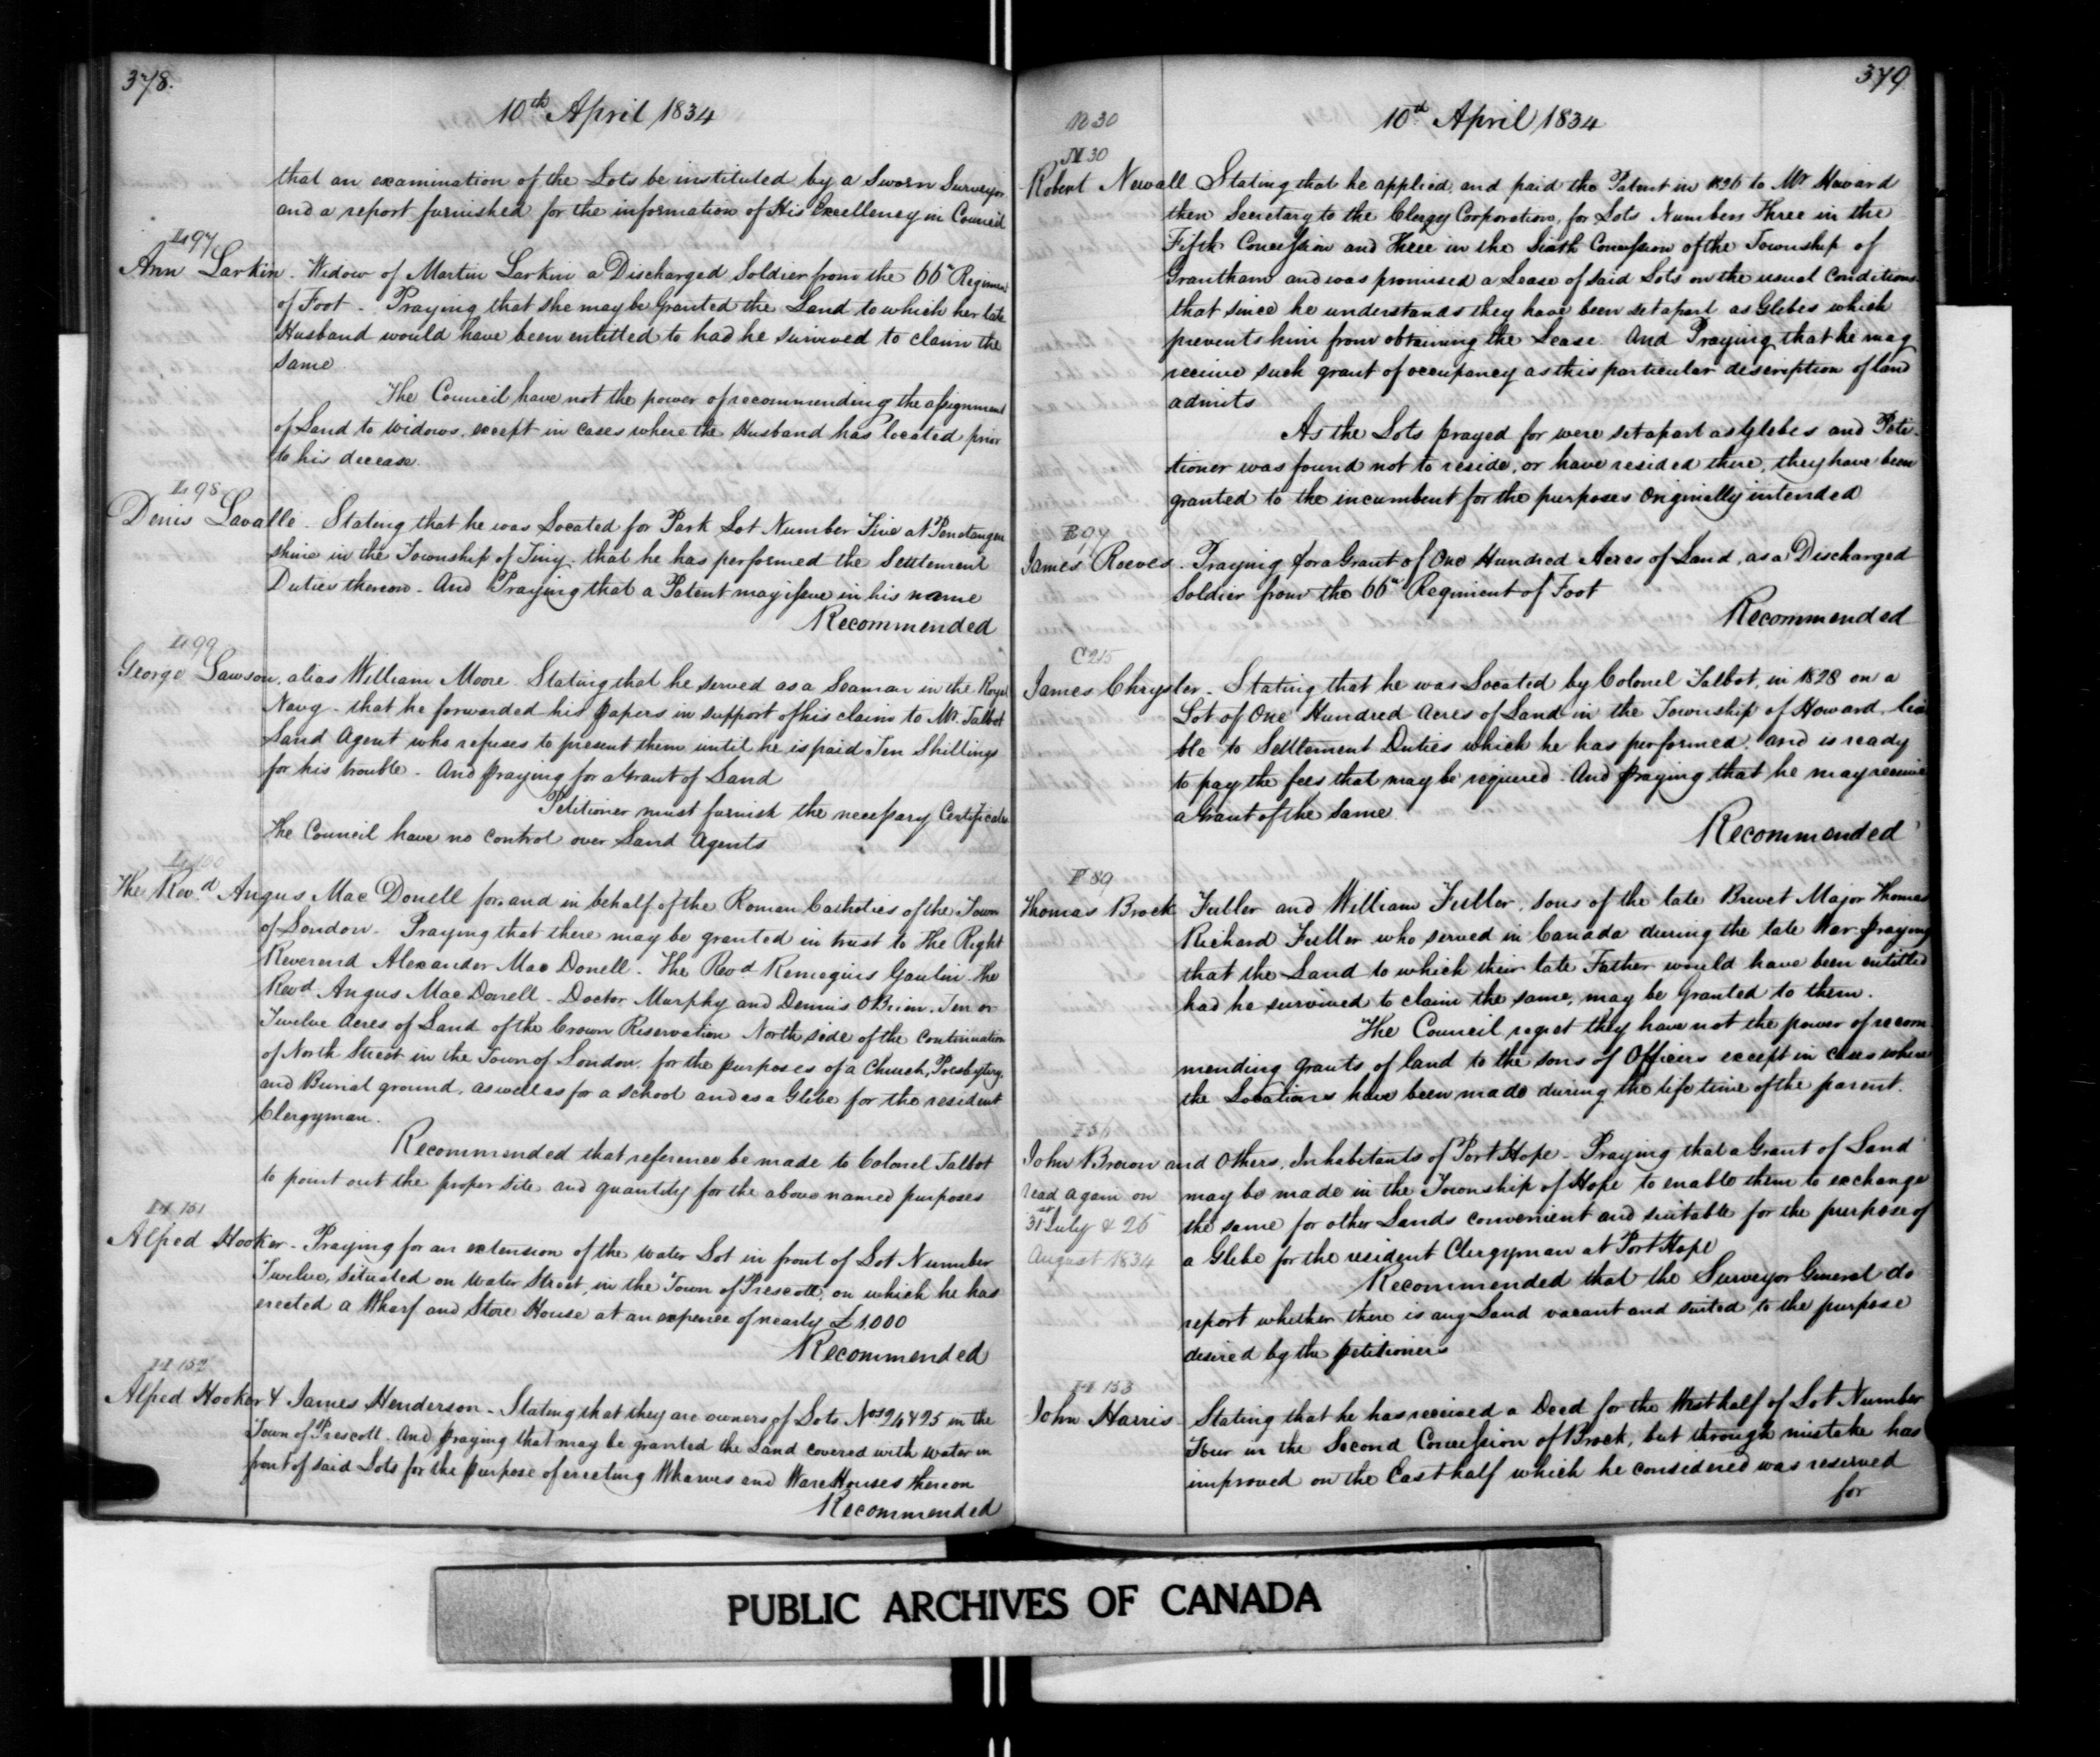 378.
10th April 1834
that an examination of the Lots be instituted by a Sworn Surveyor
and a report furnished for the information of His Excellency in Council
L 97
Ann Larkin - Widow of Martin Larkin a Discharged Soldier from the 66th Regiment
of Foot - Praying that she may be Granted the Land to which her late
Husband would have been entitled to had he survived to claim the
same
The Council have not the power of recommending the assignment
of Land to Widows except in cases where the Husband has located prior
to his decease.
L 98
Denis Lavalle - Stating that he was Located for Park Lot Number Five at Penetangui
shine in the Township of Tiny. that he has performed the Settlement
Duties thereon - And Praying that a Patent may issue in his name
Recommended
L 99
George Lawson, alias William Moore. Stating that he served as a Seaman in the Royal
Navy - that he forwarded his papers in support of his claim to Mr. Talbot
Land Agent who refuses to present them until he is paid Ten Shillings
for his trouble - And praying for a Grant of Land
Petitioner must furnish the necessary Certificates
The Council have no control over Land Agents
L 100
The Revd. Angus Mac Donell for and in behalf of the Roman Catholics of the Town
of London - Praying that there may be granted in trust to The Right
Reverend Alexander Mac Donell - The Revd Remegius Gaulin - The
Revd Angus Mac Donell - Doctor Murphy and Dennis OBrien. Ten or
Twelve Acres of Land of the Crown Reservation North side of the continuation
of North Street in the Town of London, for the purposes of a Church, Presbytery,
and Burial ground, as well as for a School and as a Glebe for the resident
Clergyman.
Recommended that reference be made to Colonel Talbot
to point out the proper site and quantity for the above named purposes
H 151
Alfred Hooker - Praying for an extension of the Water Lot in front of Lot Number
Twelve, situated on Water Street, in the Town of Prescott, on which he has
erected a Wharf and Store House at an expence of nearly £1,000
Recommended
H 152
Alfred Hooker & James Henderson - Stating that they are owners of Lots Nos 24 & 25 in the
Town of Prescott. And praying that may be granted the Land covered with water in
front of said Lots for the purpose of erecting Wharves and Ware Houses thereon
Recommended
379
10d April 1834
N 30
N 30
Robert Newall Stating that he applied, and paid the Patent in 1826 to Mr Howard
then Secretary to the Clergy Corporation, for Lots Numbers Three in the
Fifth Concession and Three in the Sixth Concession of the Township of
Grantham and was promised a Lease of said Lots on the usual Conditions
that since he understands they have been set apart as Glebes which
prevents him from obtaining the Lease. And Praying that he may
receive such grant of occupancy as this particular description of land
admits
As the Lots prayed for were set apart as Glebes and Peti-
tioner was found not to reside, or have resided there, they have been
granted to the incumbent for the purposes Originally intended
R 97
James Reeves. Praying for a Grant of One Hundred Acres of Land, as a Discharged
Soldier from the 66th Regiment of Foot
Recommended
C 215
James Chrysler - Stating that he was Located by Colonel Talbot, in 1828 on a
Lot of One Hundred Acres of Land in the Township of Howard, lia
ble to Settlement Duties which he has performed, and is ready
to pay the fees that may be required. And praying that he may receive
a Grant of the same.
Recommended
F 89
Thomas Brock Fuller and William Fuller, Sons of the late Brevet Major Thomas
Richard Fuller who served in Canada during the late War praying
that the Land to which their late Father would have been entitled
had he survived to claim the same, may be granted to them.
The Council regret they have not the power of recom-
mending grants of land to the sons of Officers except in cases where
the Locations have been made during the life time of the parent.
John Brown and Others, Inhabitants of Port Hope - Praying that a Grant of Land
read again on may be made in the Township of Hope to enable them to exchange
31st July & 26 the same for other Lands convenient and suitable for the purpose of
August 1834 a Glebe for the resident Clergyman at Port Hope
Recommended that the Surveyor General do
report whether there is any Land vacant and suited to the purpose
desired by the petitioners
H 153
John Harris Stating that he has received a Deed for the West half of Lot Number
Four in the Second Concession of Brock, but through mistake has
improved on the East half which he considered was reserved
for
PUBLIC ARCHIVES OF CANADA